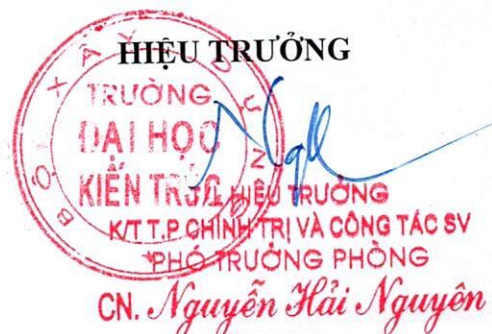 HIỆU TRƯỞNG
BỘ XÂY DỰNG
TRƯỜNG
ĐẠI HỌC
KIẾN TRÚC
HIỆU TRƯỞNG
K/T T.P CHÍNH TRỊ VÀ CÔNG TÁC SV
PHÓ TRƯỞNG PHÒNG
CN. Nguyễn Hải Nguyên